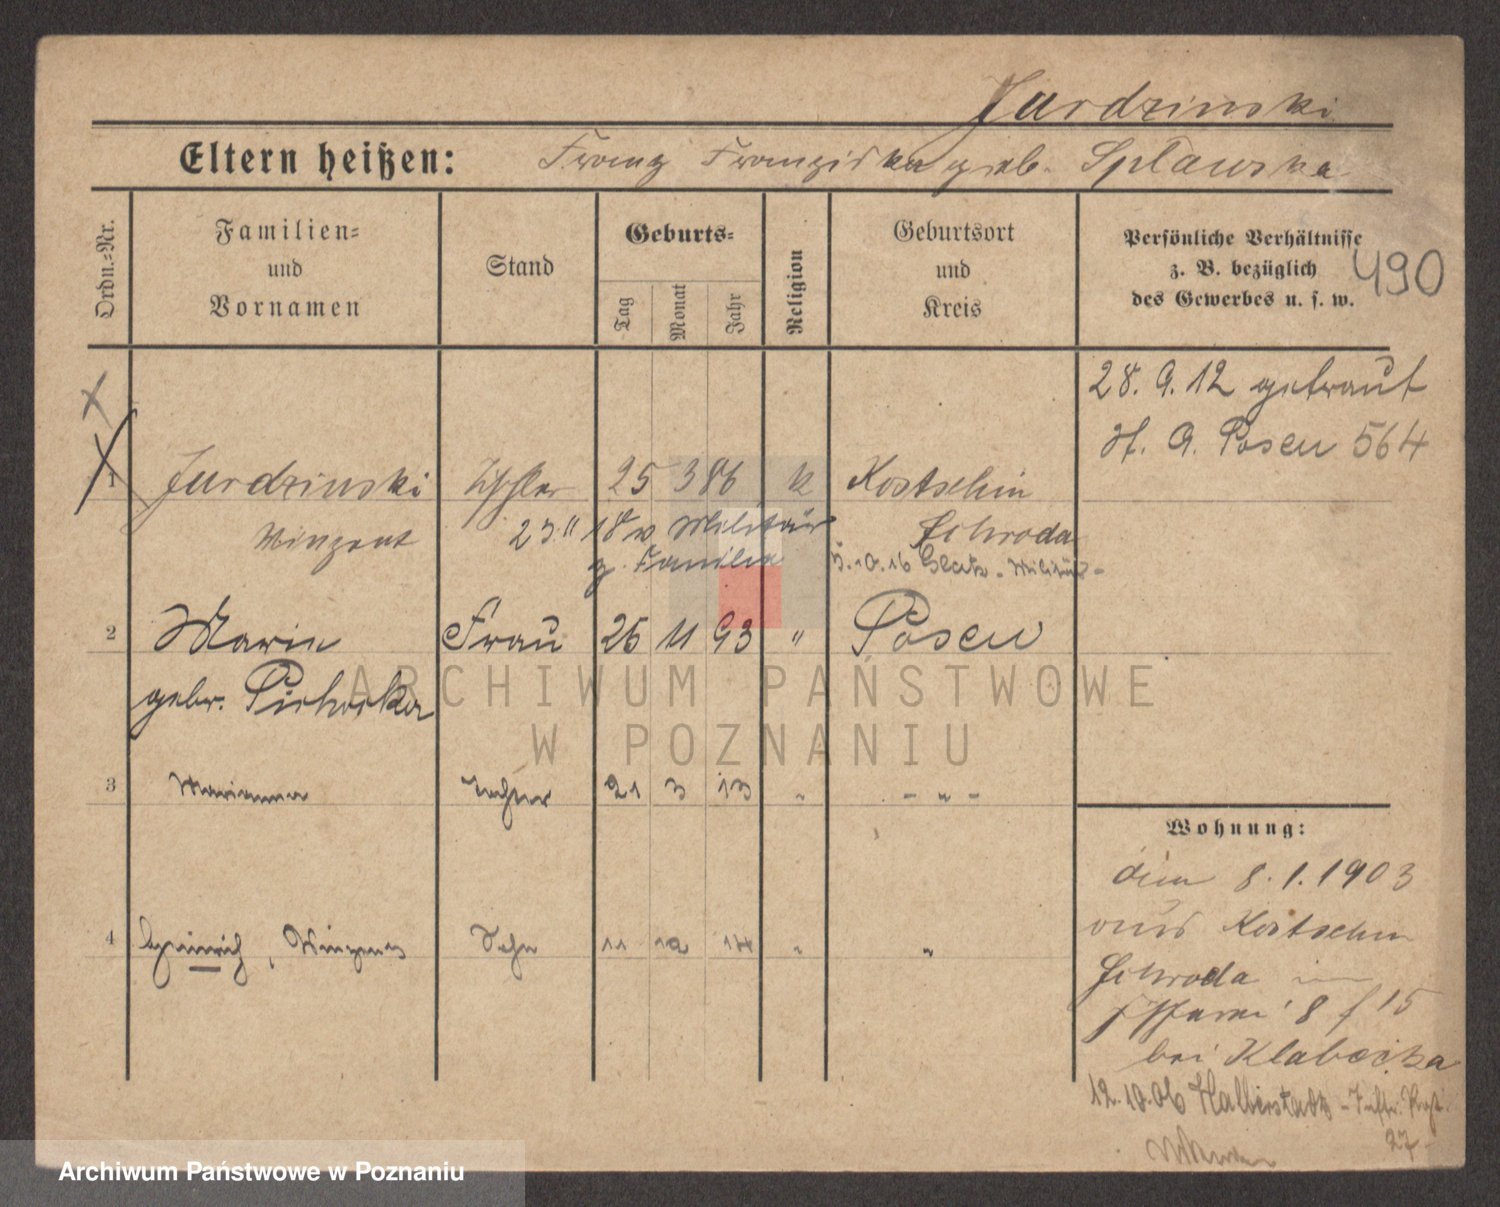 Jurdzinski
Eltern heißen: Franz Franziska geb. Splawska
Ordn.-Nr.
Familien-
und
Vornamen
Stand
Geburts-
Tag
Monat
Jahr
Religion
Geburtsort
und
Kreis
Persönliche Verhältnisse
z. B. bezüglich
des Gewerbes u. s. w.
490
28. 9. 12 getraut
St. A. Posen 564
1 Jurdzinski Tischler 25 3 86 k Kostschin
Winzent Schroda
23. 11 18 v. Militär
z. Familie
5.10.16 Glatz - Militär -
2 Marie Frau 26 11 93 " Posen
gebr. Pichocka
3 Marianna Tochter 21 3 13 " - " -
4 Heinrich, Winzent Sohn 11 12 14 " "
Wohnung:
den 8.1.1903
aus Kostschin
Schroda
8 f 15
bei Klaboczka
12.10.06 Halberstadt - Inftr. Regt.
27 -
ARCHIWUM PAŃSTWOWE
W POZNANIU
Archiwum Państwowe w Poznaniu